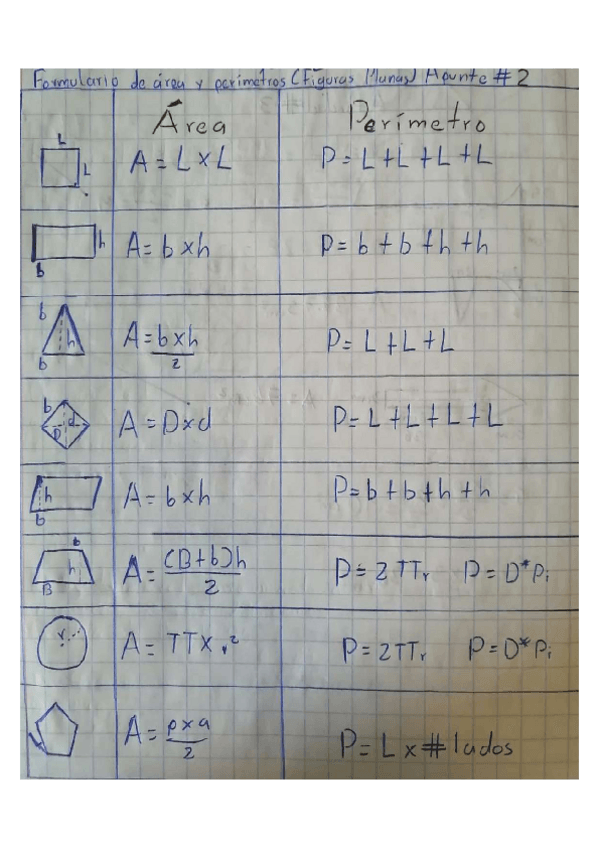 Formulario de área y perímetros (Figuras Planas) Apunte # 2
Área Perímetro
L
L
A = L x L P = L + L + L + L
h
b
A = b x h P = b + b + h + h
b
h
b
A = b x h
2
P = L + L + L
b
d
D
A = D x d P = L + L + L + L
h
b
A = b x h P = b + b + h + h
b
h
B
A = (B + b) h
2
P = 2 TTr P = D* Pi
r
A = TT x r² P = 2TTr P = D* Pi
A = p x a
2
P = L x # lados